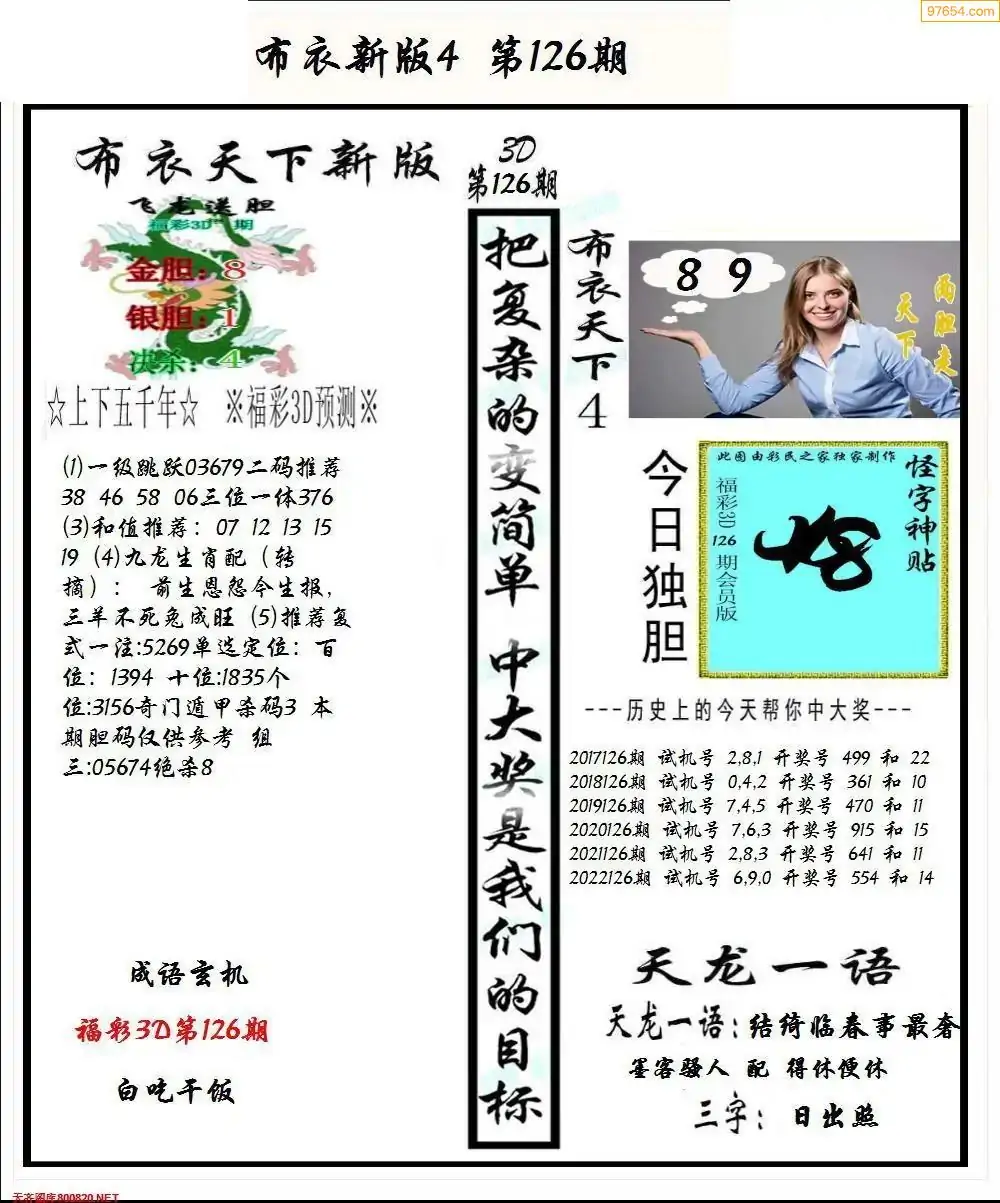 97654.com
布衣新版4 第126期
布衣天下新版
飞龙送胆
福彩3D 期
金胆：8
银胆：1
决杀：4
☆上下五千年☆ ※福彩3D预测※
(1)一级跳跃03679二码推荐
38 46 58 06三位一体376
(3)和值推荐：07 12 13 15
19 (4)九龙生肖配（转
摘）： 前生恩怨今生报，
三羊不死兔成旺 (5)推荐复
式一注:5269单选定位：百
位：1394 十位:1835个
位:3156奇门遁甲杀码3 本
期胆码仅供参考 组
三:05674绝杀8
成语玄机
福彩3D第126期
白吃干饭
3D
第126期
把复杂的变简单 中大奖是我们的目标
布衣天下4
8 9
两胆走
天下
今日独胆
此图由彩民之家独家制作
怪字神贴
福彩3D 126 期会员版
---历史上的今天帮你中大奖---
2017126期 试机号 2,8,1 开奖号 499 和 22
2018126期 试机号 0,4,2 开奖号 361 和 10
2019126期 试机号 7,4,5 开奖号 470 和 11
2020126期 试机号 7,6,3 开奖号 915 和 15
2021126期 试机号 2,8,3 开奖号 641 和 11
2022126期 试机号 6,9,0 开奖号 554 和 14
天龙一语
天龙一语:结绮临春事最奢
墨客骚人 配 得休便休
三字： 日出照
天齐图库800820.NET